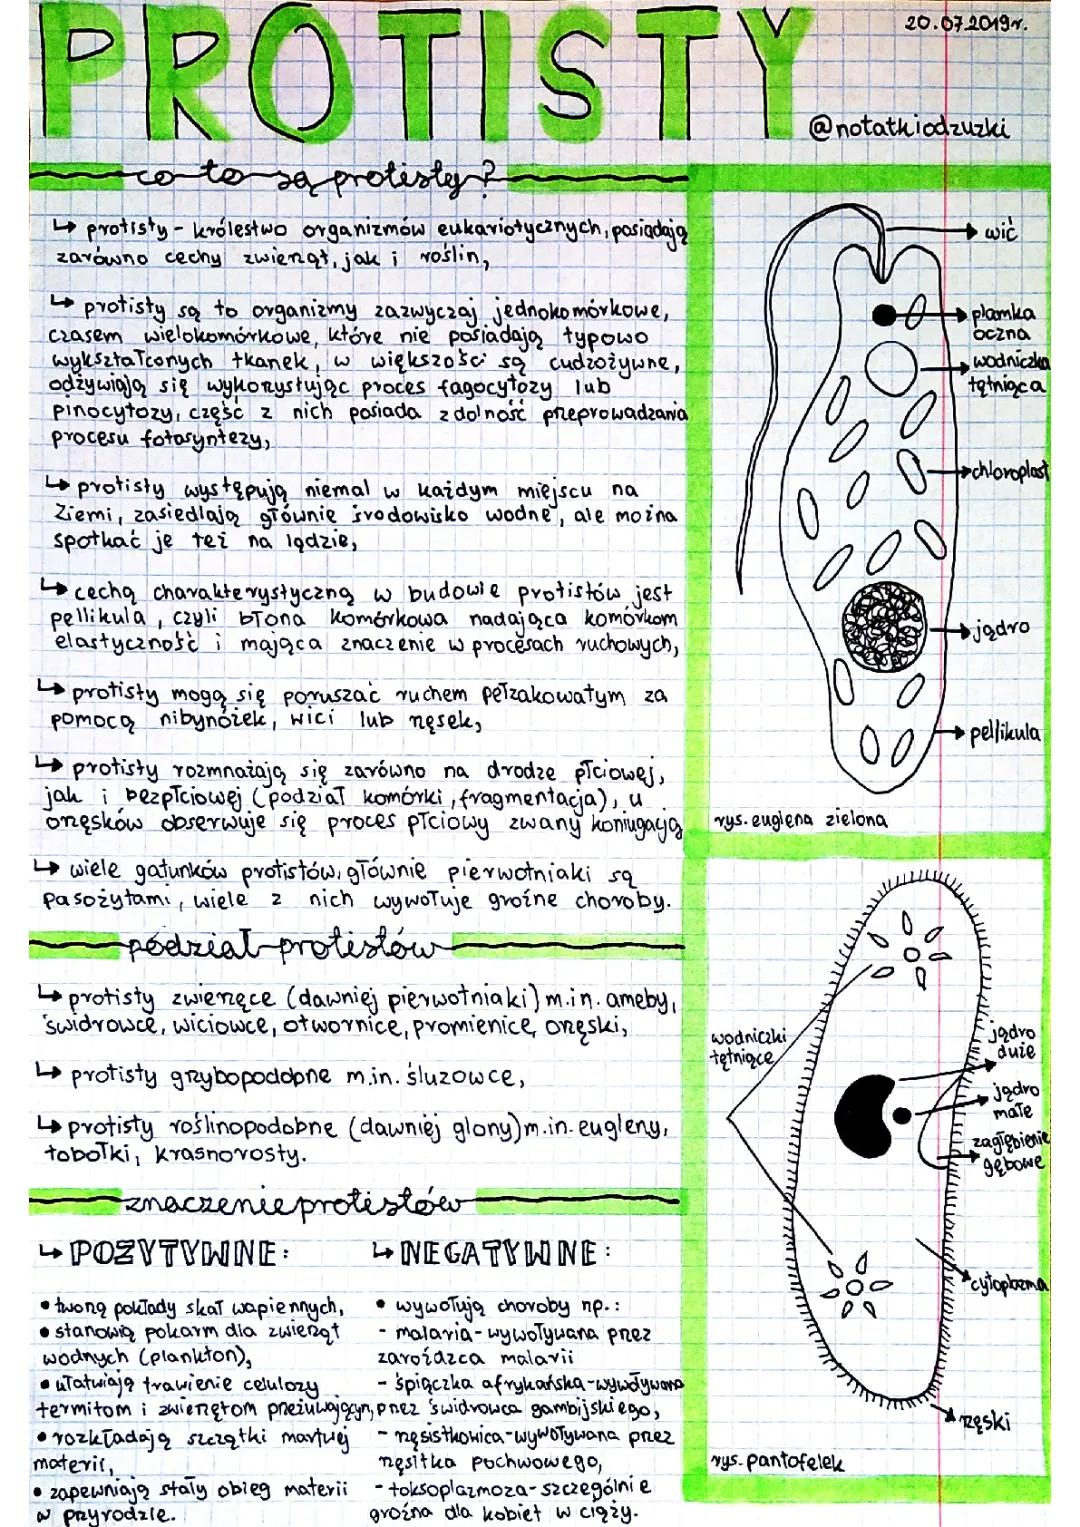 20.07.2019r.
PROTISTY
@notatkiodzuzki
co to są protisty?
↳ protisty - królestwo organizmów eukariotycznych, posiadają
zarówno cechy zwierząt, jak i roślin,
↳ protisty są to organizmy zazwyczaj jednokomórkowe,
czasem wielokomórkowe, które nie posiadają typowo
wykształconych tkanek, w większości są cudzożywne,
odżywiają się wykorzystując proces fagocytozy lub
pinocytozy, część z nich posiada zdolność przeprowadzania
procesu fotosyntezy,
↳ protisty występują niemal w każdym miejscu na
Ziemi, zasiedlają głównie środowisko wodne, ale można
spotkać je też na lądzie,
↳ cechą charakterystyczną w budowie protistów jest
pellikula, czyli błona komórkowa nadająca komórkom
elastyczność i mająca znaczenie w procesach ruchowych,
↳ protisty mogą się poruszać ruchem pełzakowatym za
pomocą nibynóżek, wici lub rzęsek,
↳ protisty rozmnażają się zarówno na drodze płciowej,
jak i bezpłciowej (podział komórki, fragmentacja), u
orzęsków obserwuje się proces płciowy zwany koniugacją
↳ wiele gatunków protistów, głównie pierwotniaki są
pasożytami, wiele z nich wywołuje groźne choroby.
podział protistów
↳ protisty zwierzęce (dawniej pierwotniaki) m.in. ameby,
świdrowce, wiciowce, otwornice, promienice, orzęski,
↳ protisty grzybopodobne m.in. śluzowce,
↳ protisty roślinopodobne (dawniej glony) m.in. eugleny,
tobołki, krasnorosty.
znaczenie protistów
↳ POZYTYWNE:
• tworzą pokłady skał wapiennych,
• stanowią pokarm dla zwierząt
wodnych (plankton),
• ułatwiają trawienie celulozy
termitom i zwierzętom przeżuwającym,
• rozkładają szczątki martwej
materii,
• zapewniają stały obieg materii
w przyrodzie.
↳ NEGATYWNE:
• wywołują choroby np.:
- malaria - wywoływana przez
zarodźca malarii
- śpiączka afrykańska - wywoływana
przez świdrowca gambijskiego,
- rzęsistkowica - wywoływana przez
rzęsistka pochwowego,
- toksoplazmoza - szczególnie
groźna dla kobiet w ciąży.
wić
plamka
oczna
wodniczka
tętniąca
chloroplast
jądro
pellikula
rys. euglena zielona
wodniczki
tętniące
jądro
duże
jądro
małe
zagłębienie
gębowe
cytoplazma
rzęski
rys. pantofelek